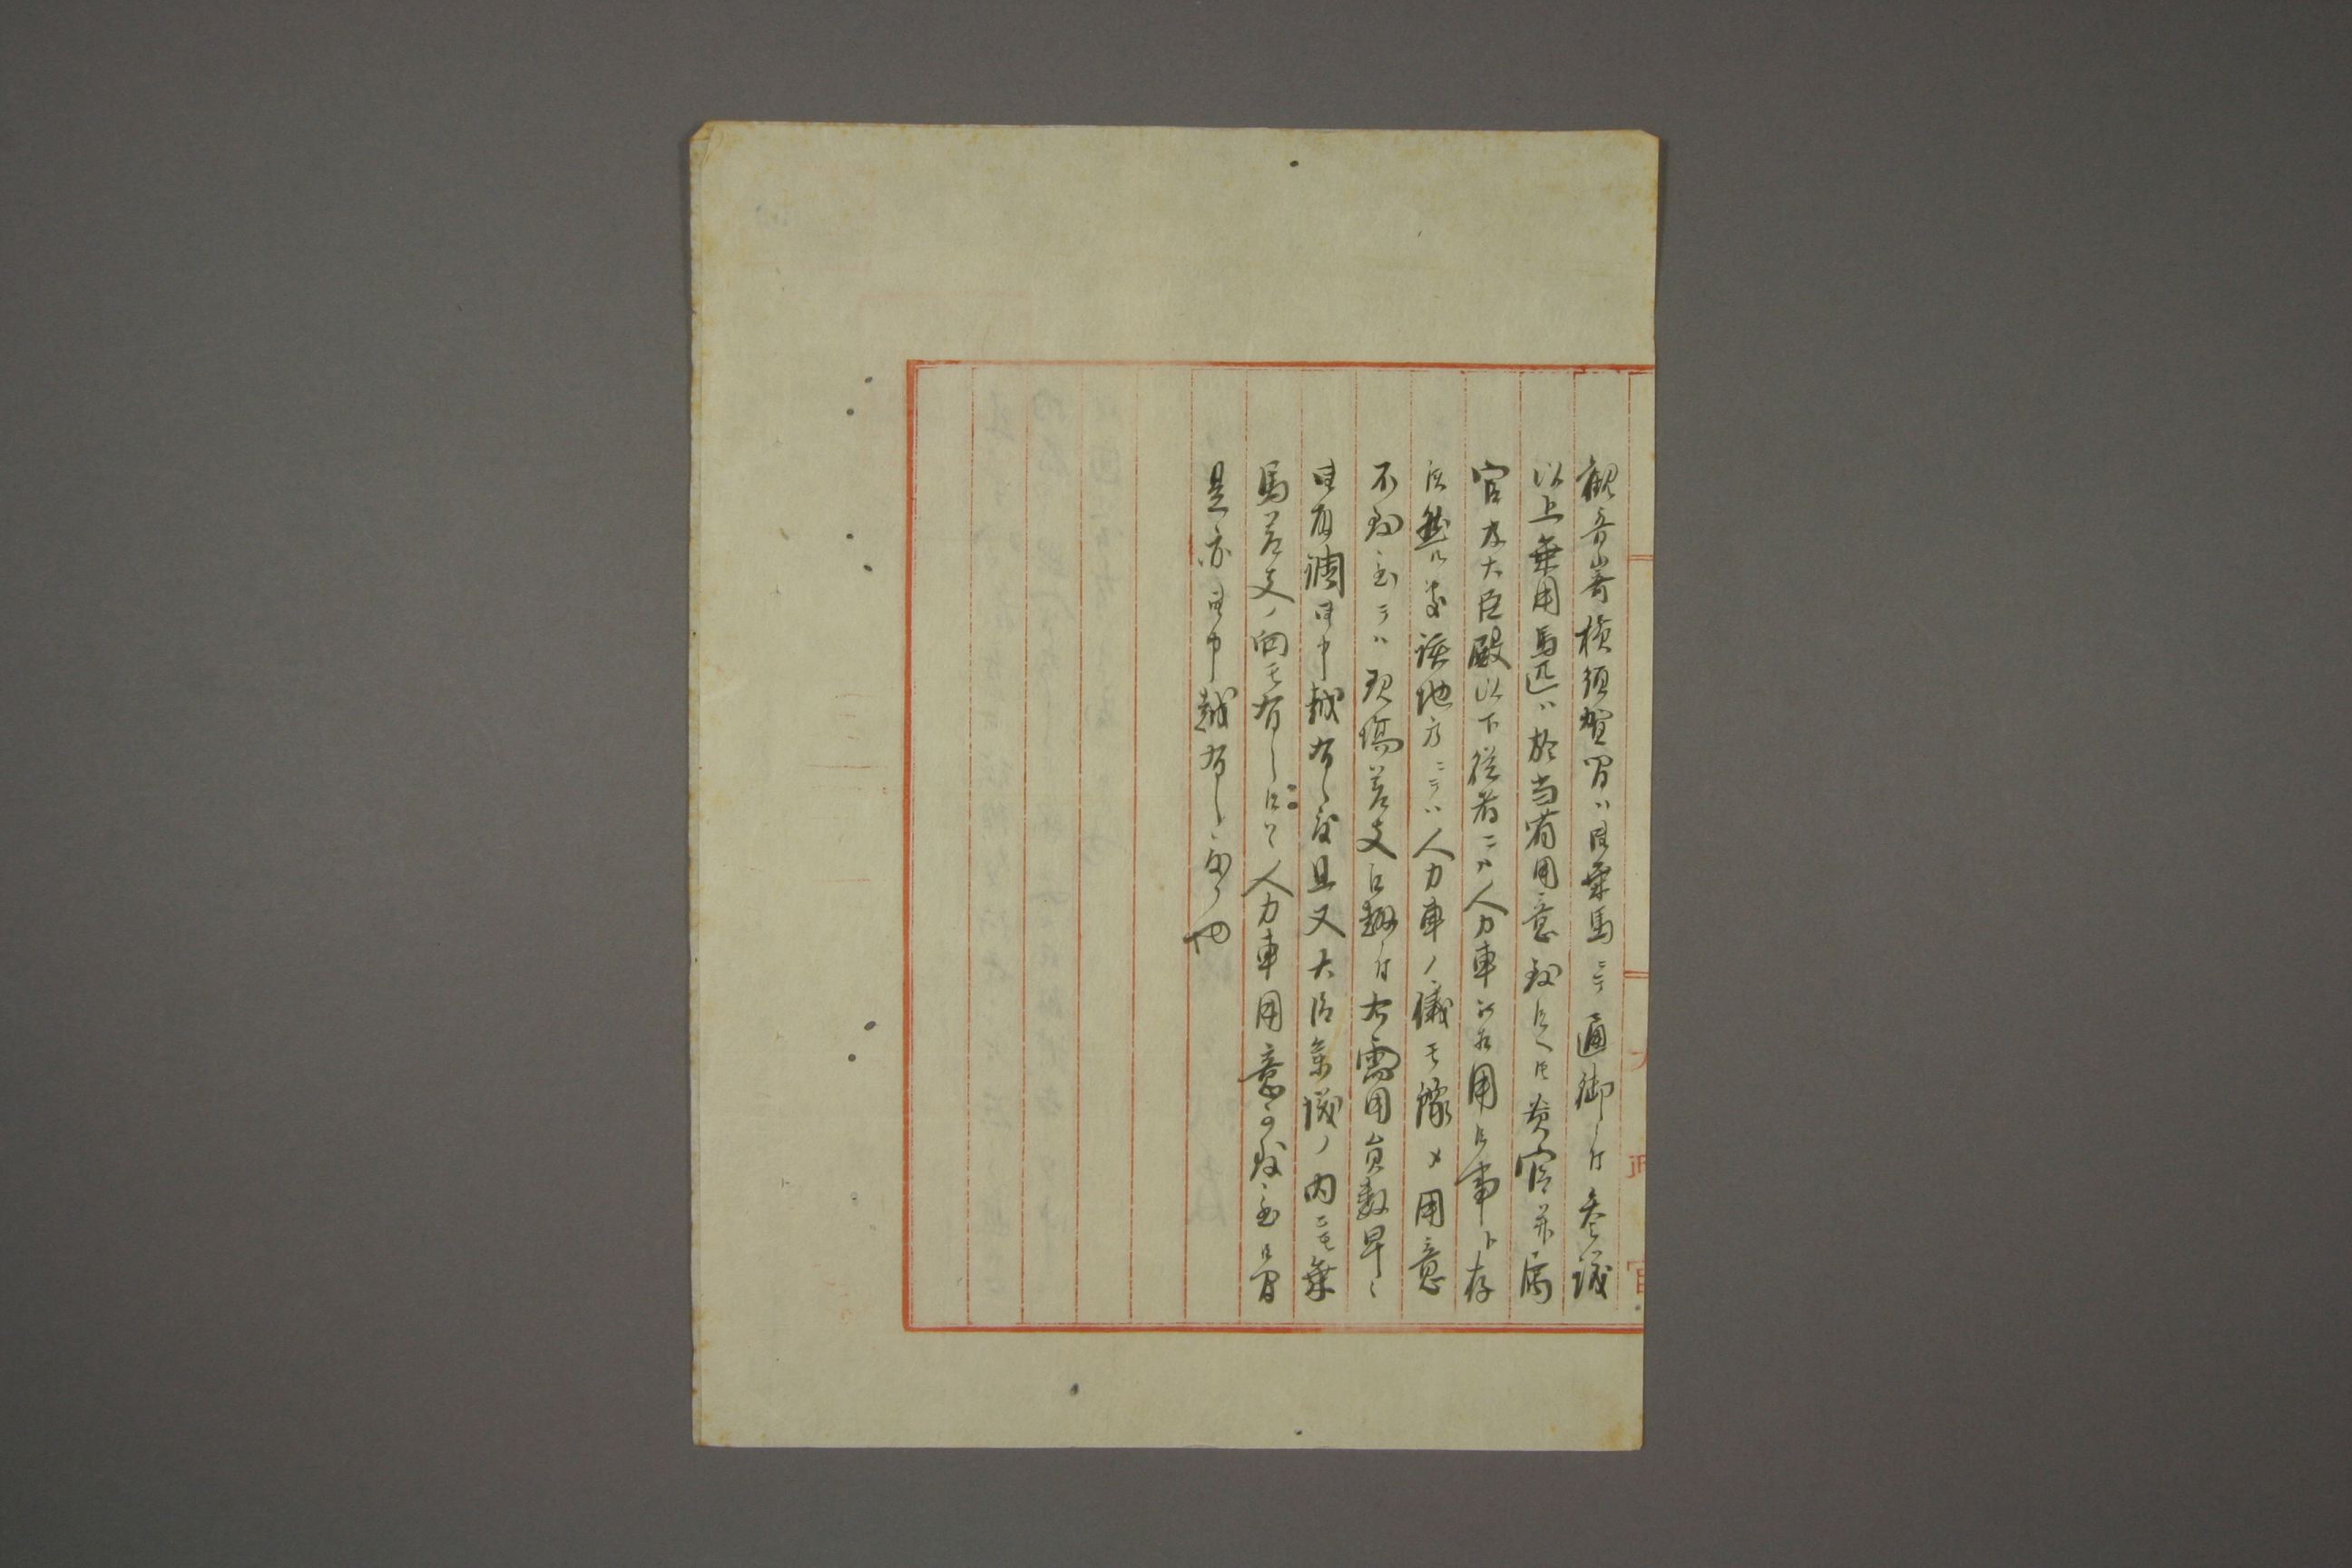 観音崎横須賀間ハ御乗馬ニテ通御ニ付参議
以上乗用馬匹ハ於当省用意致候ヘ共貴官并属
官及大臣殿以下従者ニハ人力車御相用候事ト存
候然ル処該地方ニテハ人力車ノ儀モ予メ用意
不致至テハ現場差支候趣ニ付右需用員数早々
御取調御申越有之度且又大臣参議ノ内ニモ乗
馬差支ノ向モ有之候ハヽ人力車用意可致ニ至候間
是亦御申越有之度候也
太政官